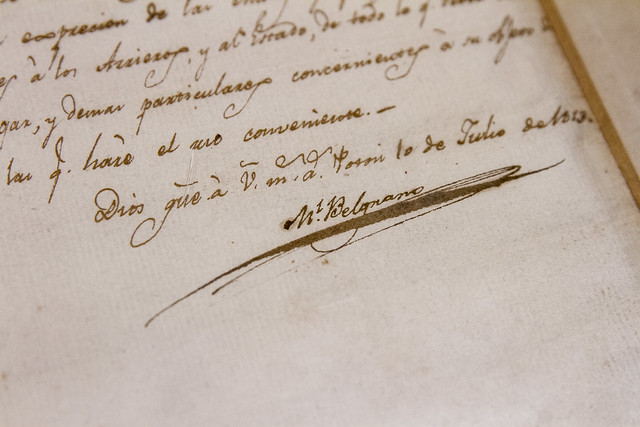 expresion de las
à los Arrieros, y al Estado, de todo lo q.
y demas particulares concernientes à su
las q. hare el uso conveniente.—
Dios gũe à V. m. a. Potosi 10 de Julio de 1813.
M.l Belgrano